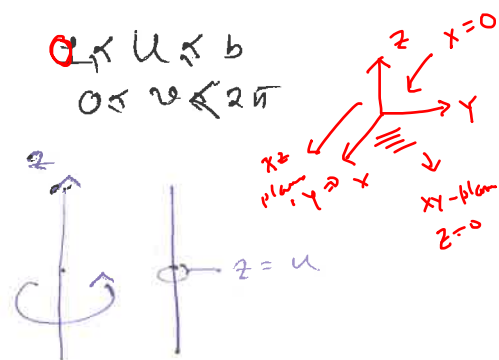 0 ≤ u ≤ b
0 ≤ v ≤ 2π
Z
X=0
Y
X
XZ
plan
, Y=0
XY-plan
Z=0
Z
Z = u